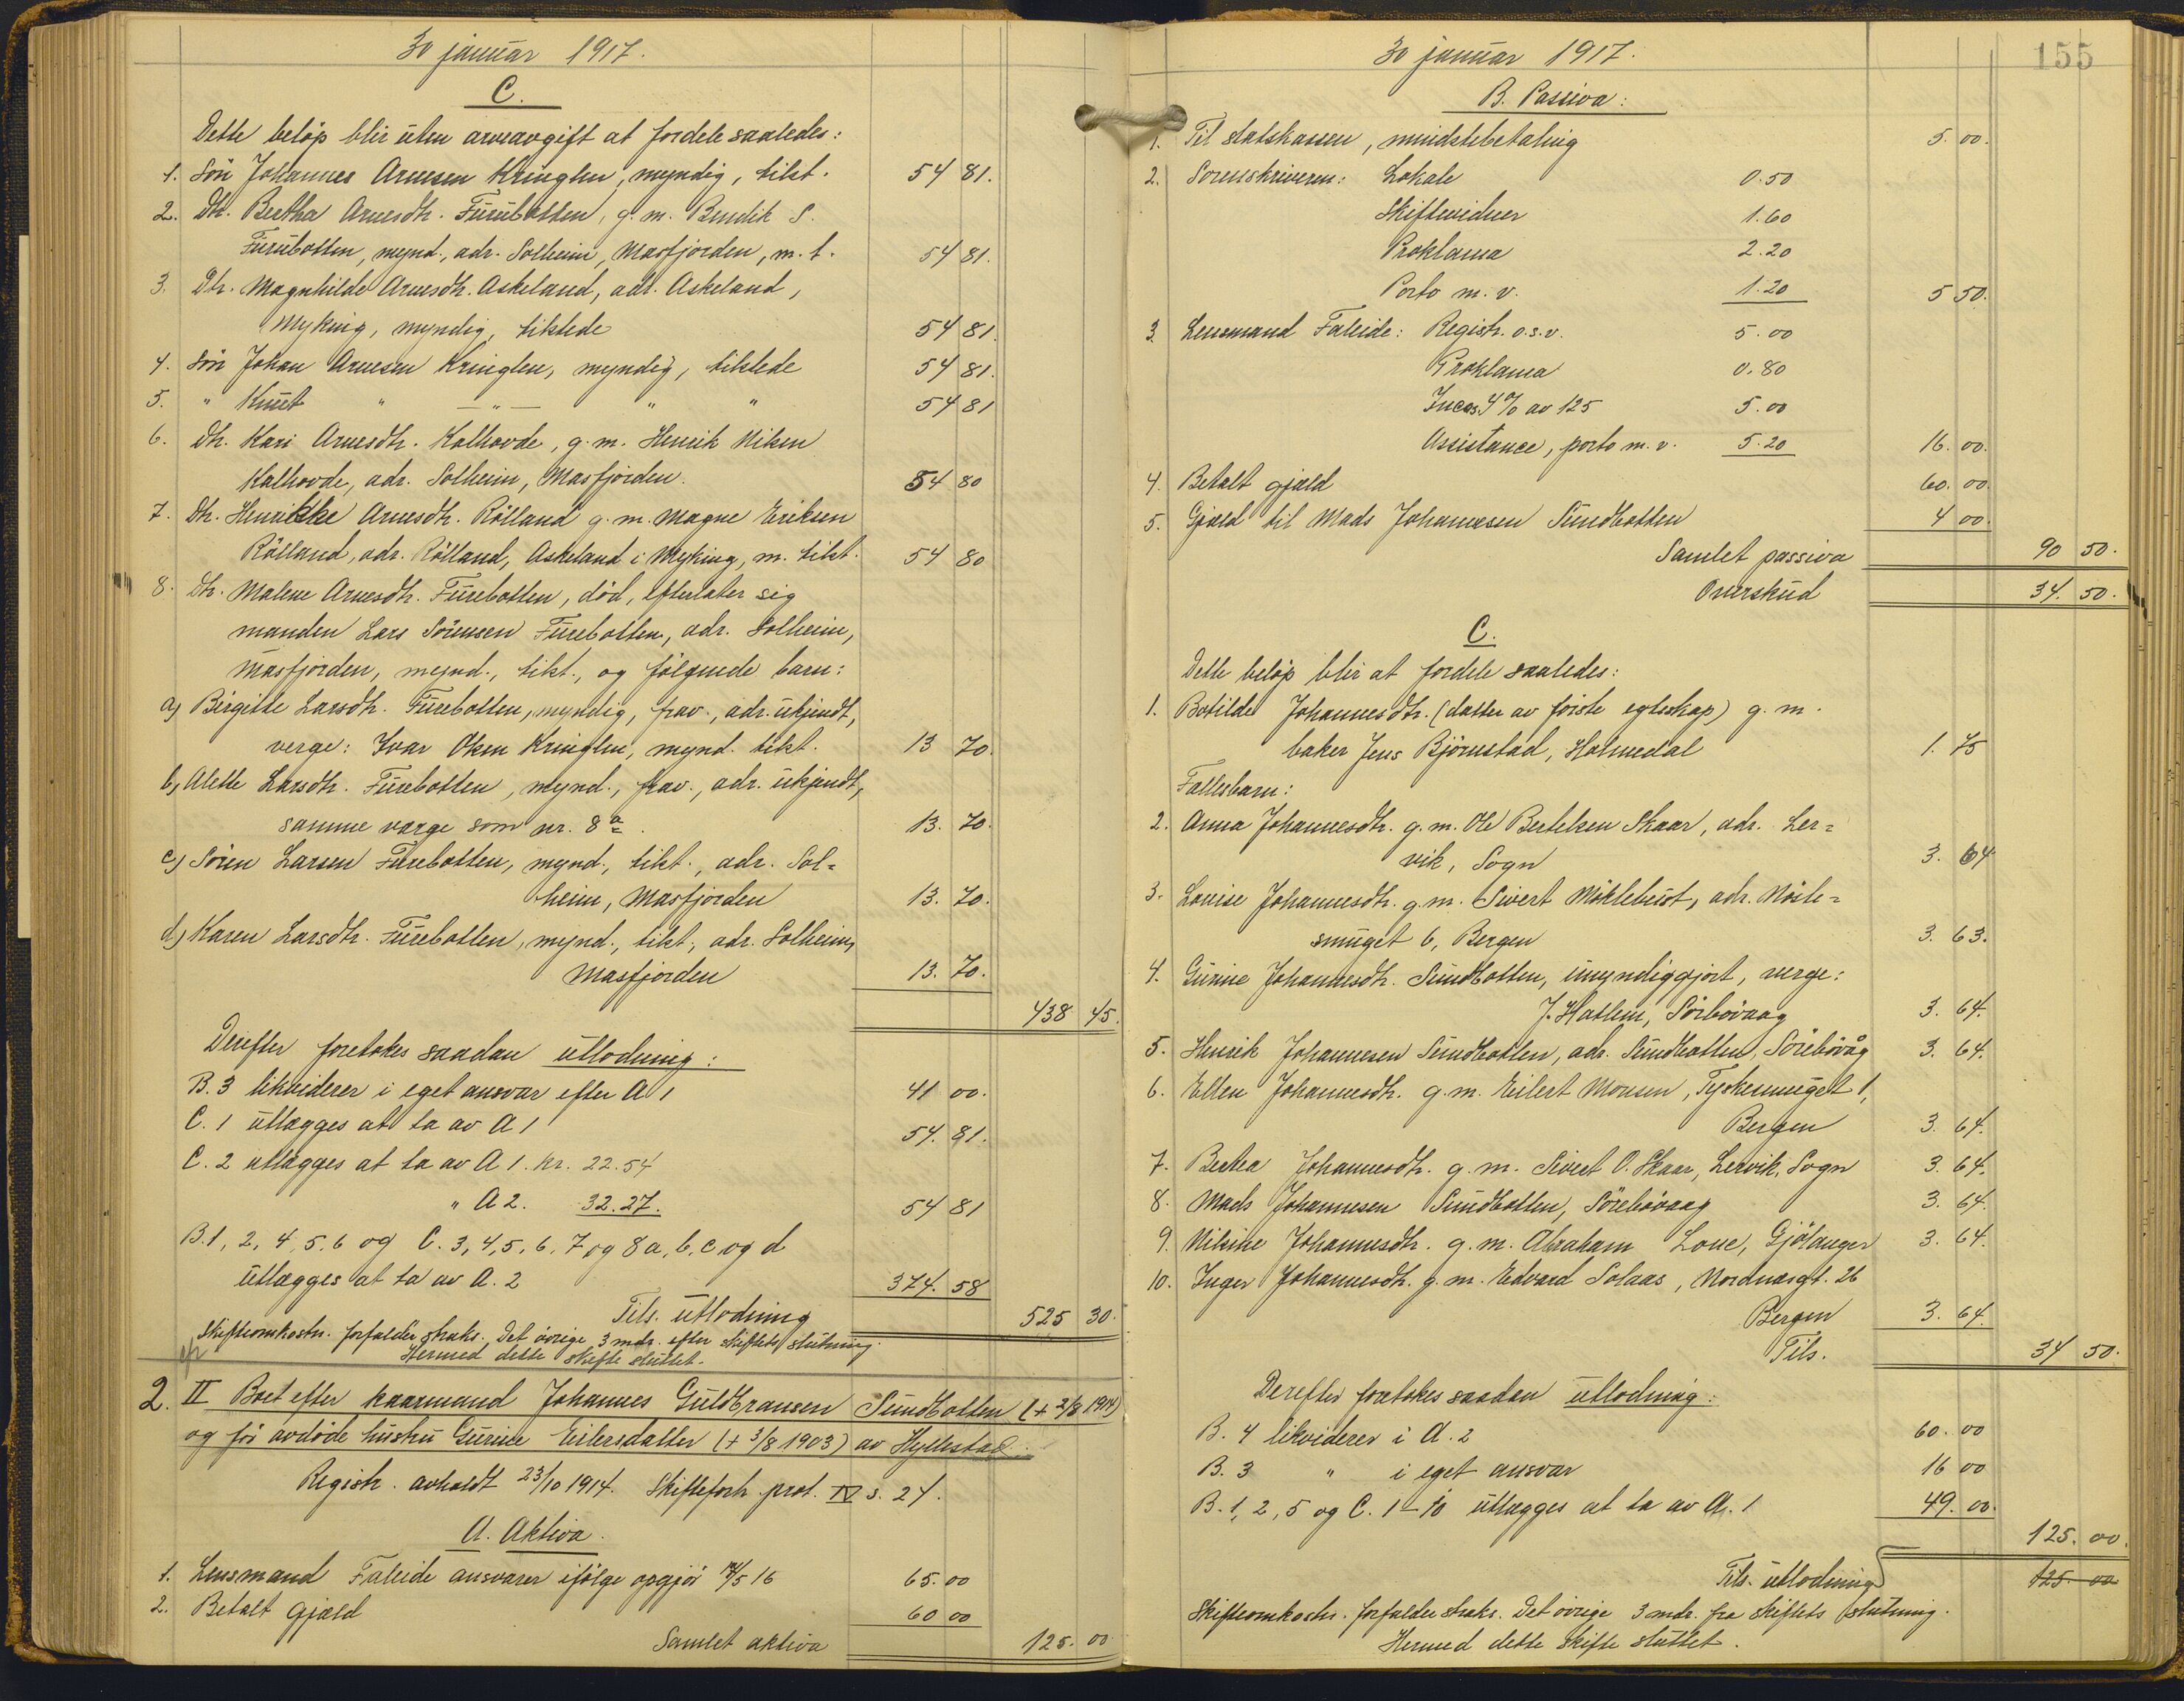 30 januar 1917.
C.
Dette beløp blir uten arveavgift at fordele saaledes:
1. Søn Johannes Arnesen Kringlen, myndig, tilst. 54 81.
2. Dtr. Bertha Arnesdtr. Furubotten, g. m. Bendik S.
Furubotten, mynd., adr. Solheim, Masfjorden, m. t. 54 81.
3. Dtr. Magnhilde Arnesdtr. Askeland, adr. Askeland,
Myking, myndig, tilstede 54 81.
4. Søn Johan Arnesen Kringlen, myndig, tilstede 54 81.
5. " Knut " — " — " " 54 81
6. Dtr. Kari Arnesdtr. Kalhovde, g. m. Henrik Nilsen
Kalhovde, adr. Solheim, Masfjorden. 54 80
7. Dtr. Henrikke Arnesdtr. Rölland g. m. Magne Eriksen
Rölland, adr. Rölland, Askeland i Myking, m. tilst. 54 80
8. Dtr. Malene Arnesdtr. Furebotten, död, efterlater sig
manden Lars Sörensen Furebotten, adr. Solheim,
Masfjorden, mynd., tilst., og fölgende barn:
a) Birgitte Larsdtr. Furebotten, myndig, frav., adr. ukjendt,
verge: Ivar Olsen Kringlen, mynd. tilst. 13 70.
b) Alette Larsdtr. Furebotten, mynd., frav., adr. ukjendt,
samme verge som nr. 8 a. 13. 70.
c) Sören Larsen Furebotten, mynd., tilst., adr. Sol=
heim, Masfjorden 13. 70.
d) Karen Larsdtr. Furebotten, mynd., tilst., adr. Solheim,
Masfjorden 13. 70.
438 45.
Derefter foretokes saadan utlodning:
B. 3 likviderer i eget ansvar efter A 1 41 00.
C. 1 utlægges at ta av A 1 54. 81.
C. 2 utlægges at ta av A 1. kr. 22.54
" A 2. 32.27. 54 81
B. 1, 2, 4, 5. 6 og C. 3, 4, 5, 6, 7 og 8 a, b, c og d
utlægges at ta av A. 2 374. 58
Tils. utlodning 525 30.
Skifteomkostn. forfalder straks. Det övrige 3 mdr. efter skiftets slutning.
Hermed dette skifte sluttet.
2. II Boet efter kaarmand Johannes Guldbransen Sundbotten (+ 2/8 1914)
og før avdöde hustru Gurine Eilersdatter (+ 3/8 1903) av Hyllestad.
Registr. avholdt 23/10 1914. Skifteforh. prot. IV s. 24.
A. Aktiva.
1. Lensmand Faleide ansvarer ifölge opgjör 14/5 16 65.00
2. Betalt gjæld 60 00
Samlet aktiva 125. 00.
155
30 januar 1917.
B. Passiva:
1. Til statskassen, mindstebetaling 5. 00.
2. Sorenskriveren: Lokale 0.50
Skiftevidner 1.60
Proklama 2.20
Porto m. v. 1.20 5 50.
3. Lensmand Faleide: Registr. o.s.v. 5.00
Proklama 0.80
Incas. 4% av 125 5.00
Assistance, porto m. v. 5.20 16. 00.
4. Betalt gjæld 60. 00.
5. Gjæld til Mads Johannesen Sundbotten 4 00.
Samlet passiva 90 50.
Overskud 34. 50.
C.
Dette beløp blir at fordele saaledes:
1. Botilde Johannesdtr. (datter av förste egteskap) g. m.
baker Jens Bjömstad, Holmedal 1. 75
Fællesbarn:
2. Anna Johannesdtr. g. m. Ole Bertelsen Skaar, adr. Ler=
vik, Sogn 3. 64
3. Louise Johannesdtr. g. m. Sivert Möklebust, adr. Nöste=
smuget 6, Bergen 3. 63.
4. Gurine Johannesdtr. Sundbotten, umyndiggjort, verge:
J. Hatlem, Sörbövaag 3. 64.
5. Henrik Johannesen Sundbotten, adr. Sundbotten, Sörebövåg 3. 64.
6. Ellen Johannesdtr. g. m. Eilert Monsen, Tyskesmuget 1,
Bergen 3. 64.
7. Bertea Johannesdtr. g. m. Sivert O. Skaar, Lervik, Sogn 3. 64.
8. Mads Johannesen Sundbotten, Sörebövaag 3. 64.
9. Nilsine Johannesdtr. g. m. Abraham Lone, Gjölanger 3. 64.
10. Inger Johannesdtr. g. m. Edvard Solaas, Nordnæsgt. 26
Bergen 3. 64.
Tils. 34 50.
Derefter foretokes saadan utlodning:
B. 4 likviderer i A. 2 60. 00
B. 3 " i eget ansvar 16 00
B. 1, 2, 5 og C. 1 – 10 utlægges at ta av A. 1 49. 00.
125. 00.
Tils. utlodning 125. 00
Skifteomkostn. forfalder straks. Det övrige 3 mdr. fra skiftets slutning.
Hermed dette skifte sluttet.